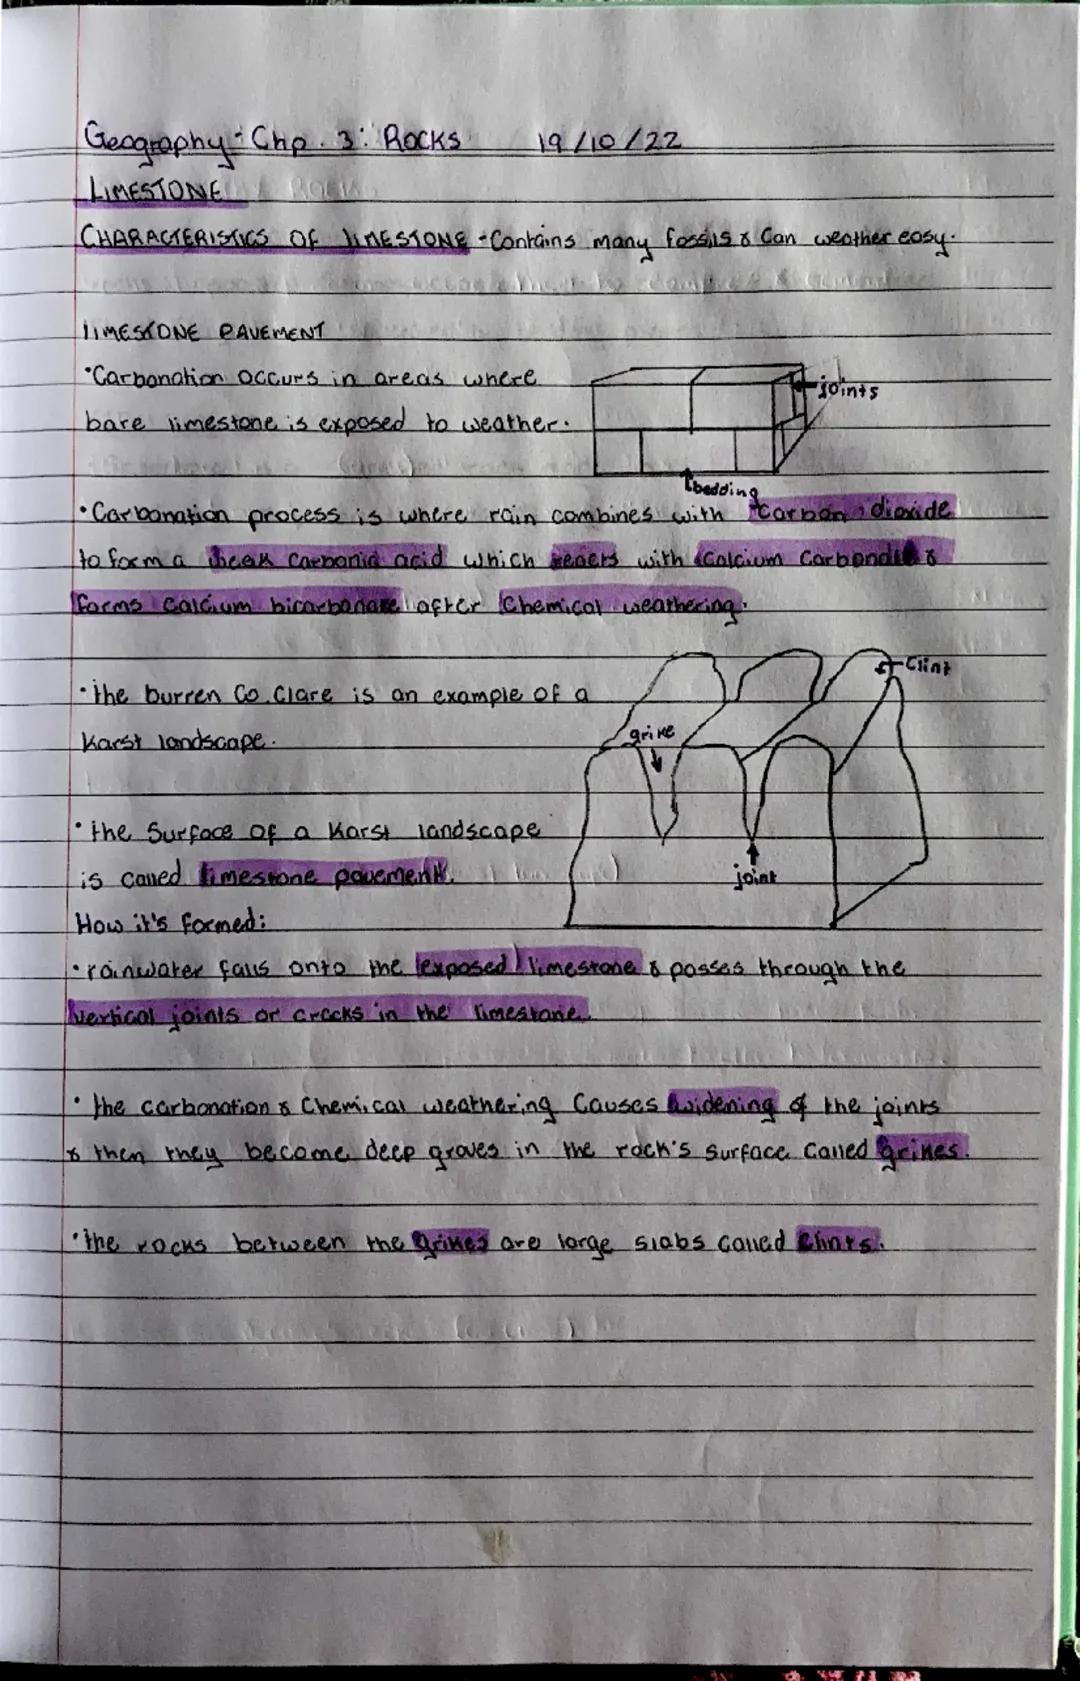 Geography: Chp. 3: Rocks 19/10/22
LIMESTONE
CHARACTERISTICS OF LIMESTONE - Contains many fossils & Can weather easy.
LIMESTONE PAVEMENT
•Carbonation occurs in areas where
bare limestone is exposed to weather.
joints
bedding
•Carbonation process is where rain combines with carbon dioxide
to form a weak Carbonic acid which reacts with Calcium Carbonate &
forms Calcium bicarbonate after Chemical weathering.
•the burren Co. Clare is an example of a
Karst landscape.
Clint
grike
joint
•the Surface of a Karst landscape
is called limestone pavement.
How it's formed:
•rainwater falls onto the exposed limestone & passes through the
vertical joints or cracks in the limestone.
•the carbonation & Chemical weathering Causes widening of the joints
& then they become deep groves in the rock's surface called grikes.
•the rocks between the grikes are large slabs called Clints.